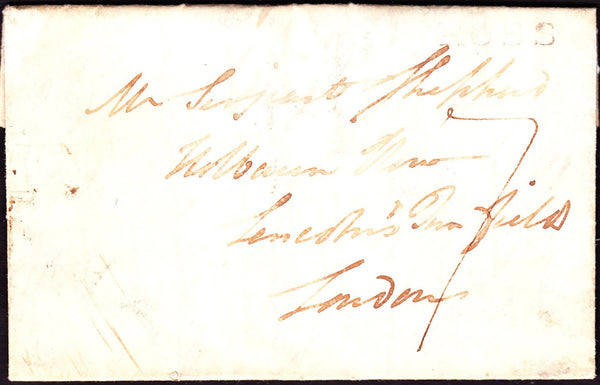 Mr Serjeant Shepherd
Holbourn Row
Lincoln's Inn Fields
London
7